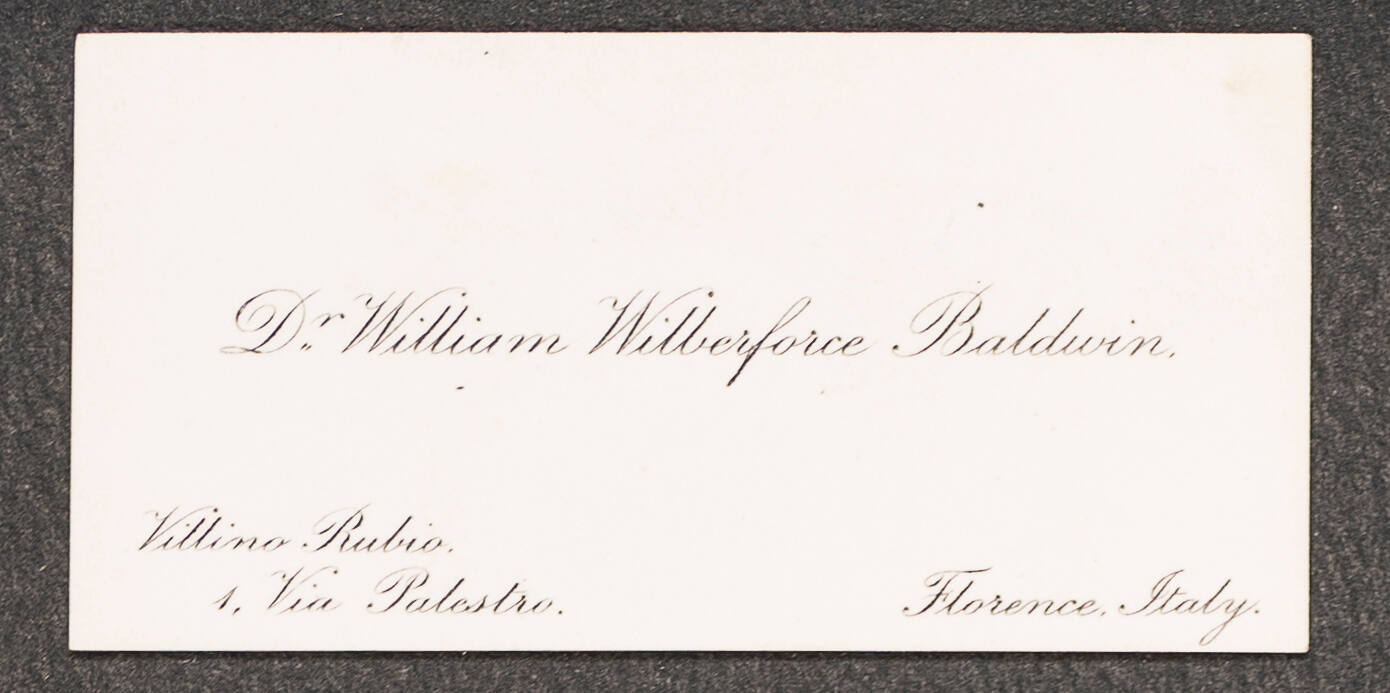 Dr. William Wilberforce Baldwin.
Villino Rubio.
1, Via Palestro.
Florence, Italy.